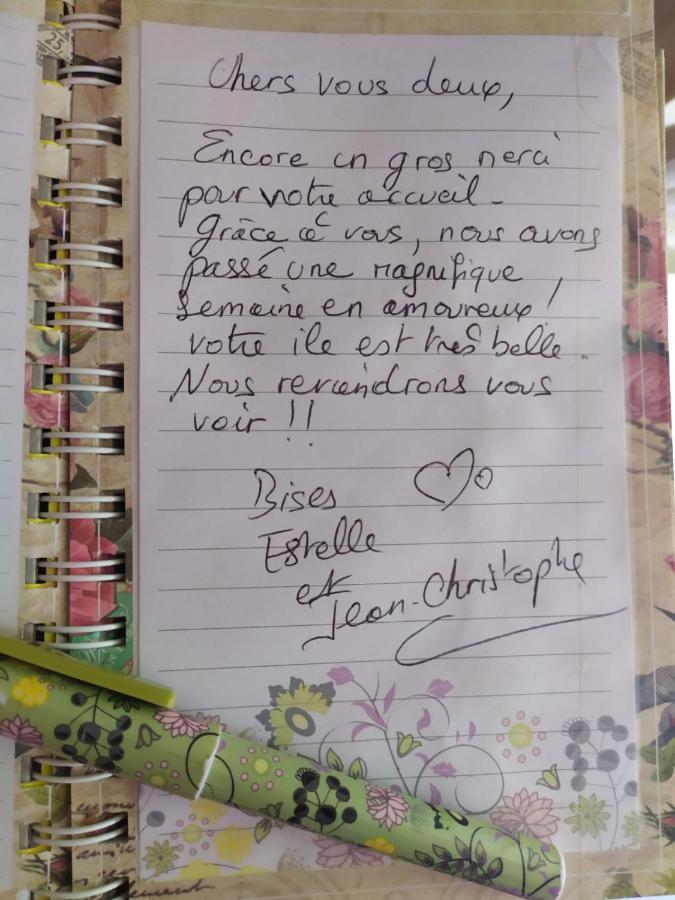 Chers vous deux,
Encore un gros merci
pour votre accueil.
Grâce à vous, nous avons
passé une magnifique
semaine en amoureux !
votre ile est très belle.
Nous reviendrons vous
voir !!
Bises
Estelle
et
Jean-Christophe
25,